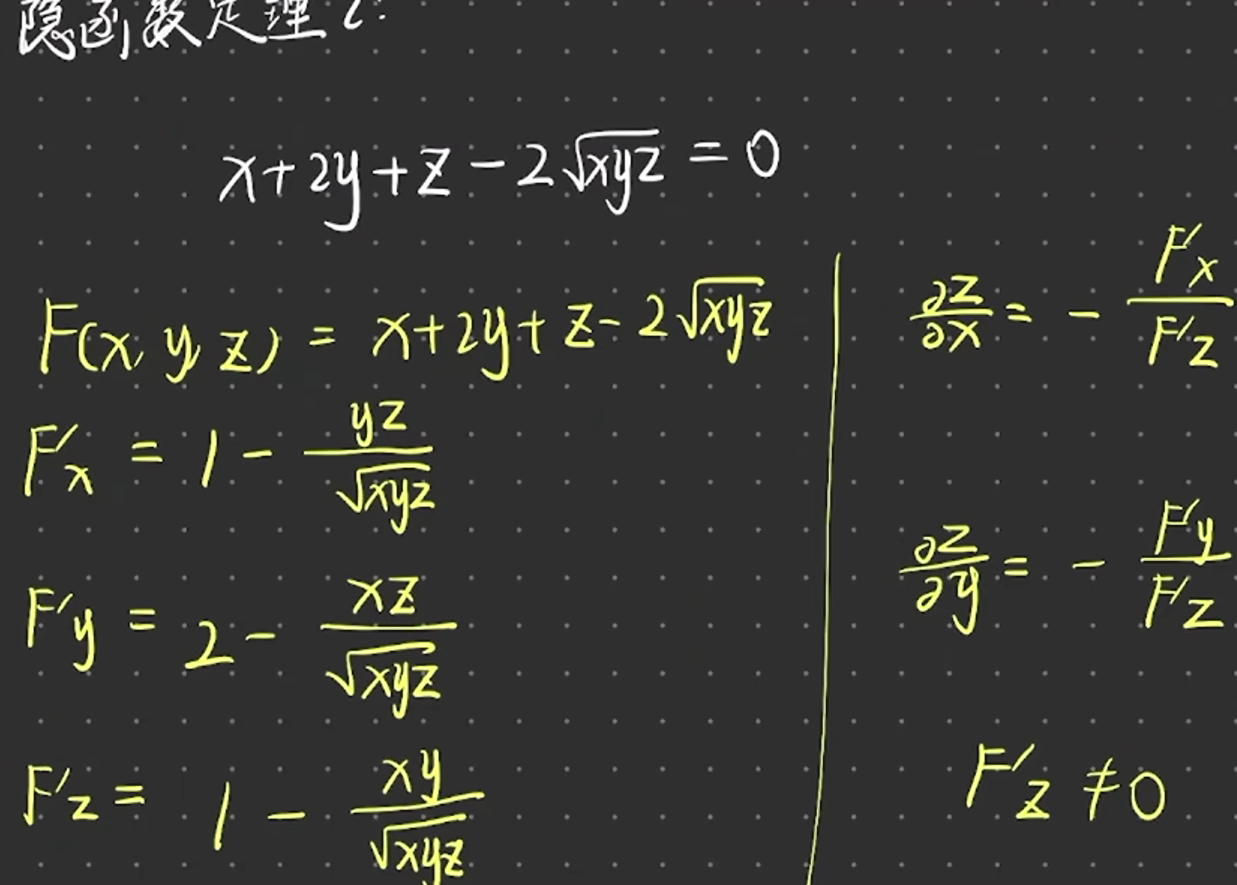 隐函数定理2:
x+2y+z-2√xyz = 0
F(x, y, z) = x+2y+z-2√xyz
F'x = 1 - yz/√xyz
F'y = 2 - xz/√xyz
F'z = 1 - xy/√xyz
∂z/∂x = - F'x/F'z
∂z/∂y = - F'y/F'z
F'z ≠ 0